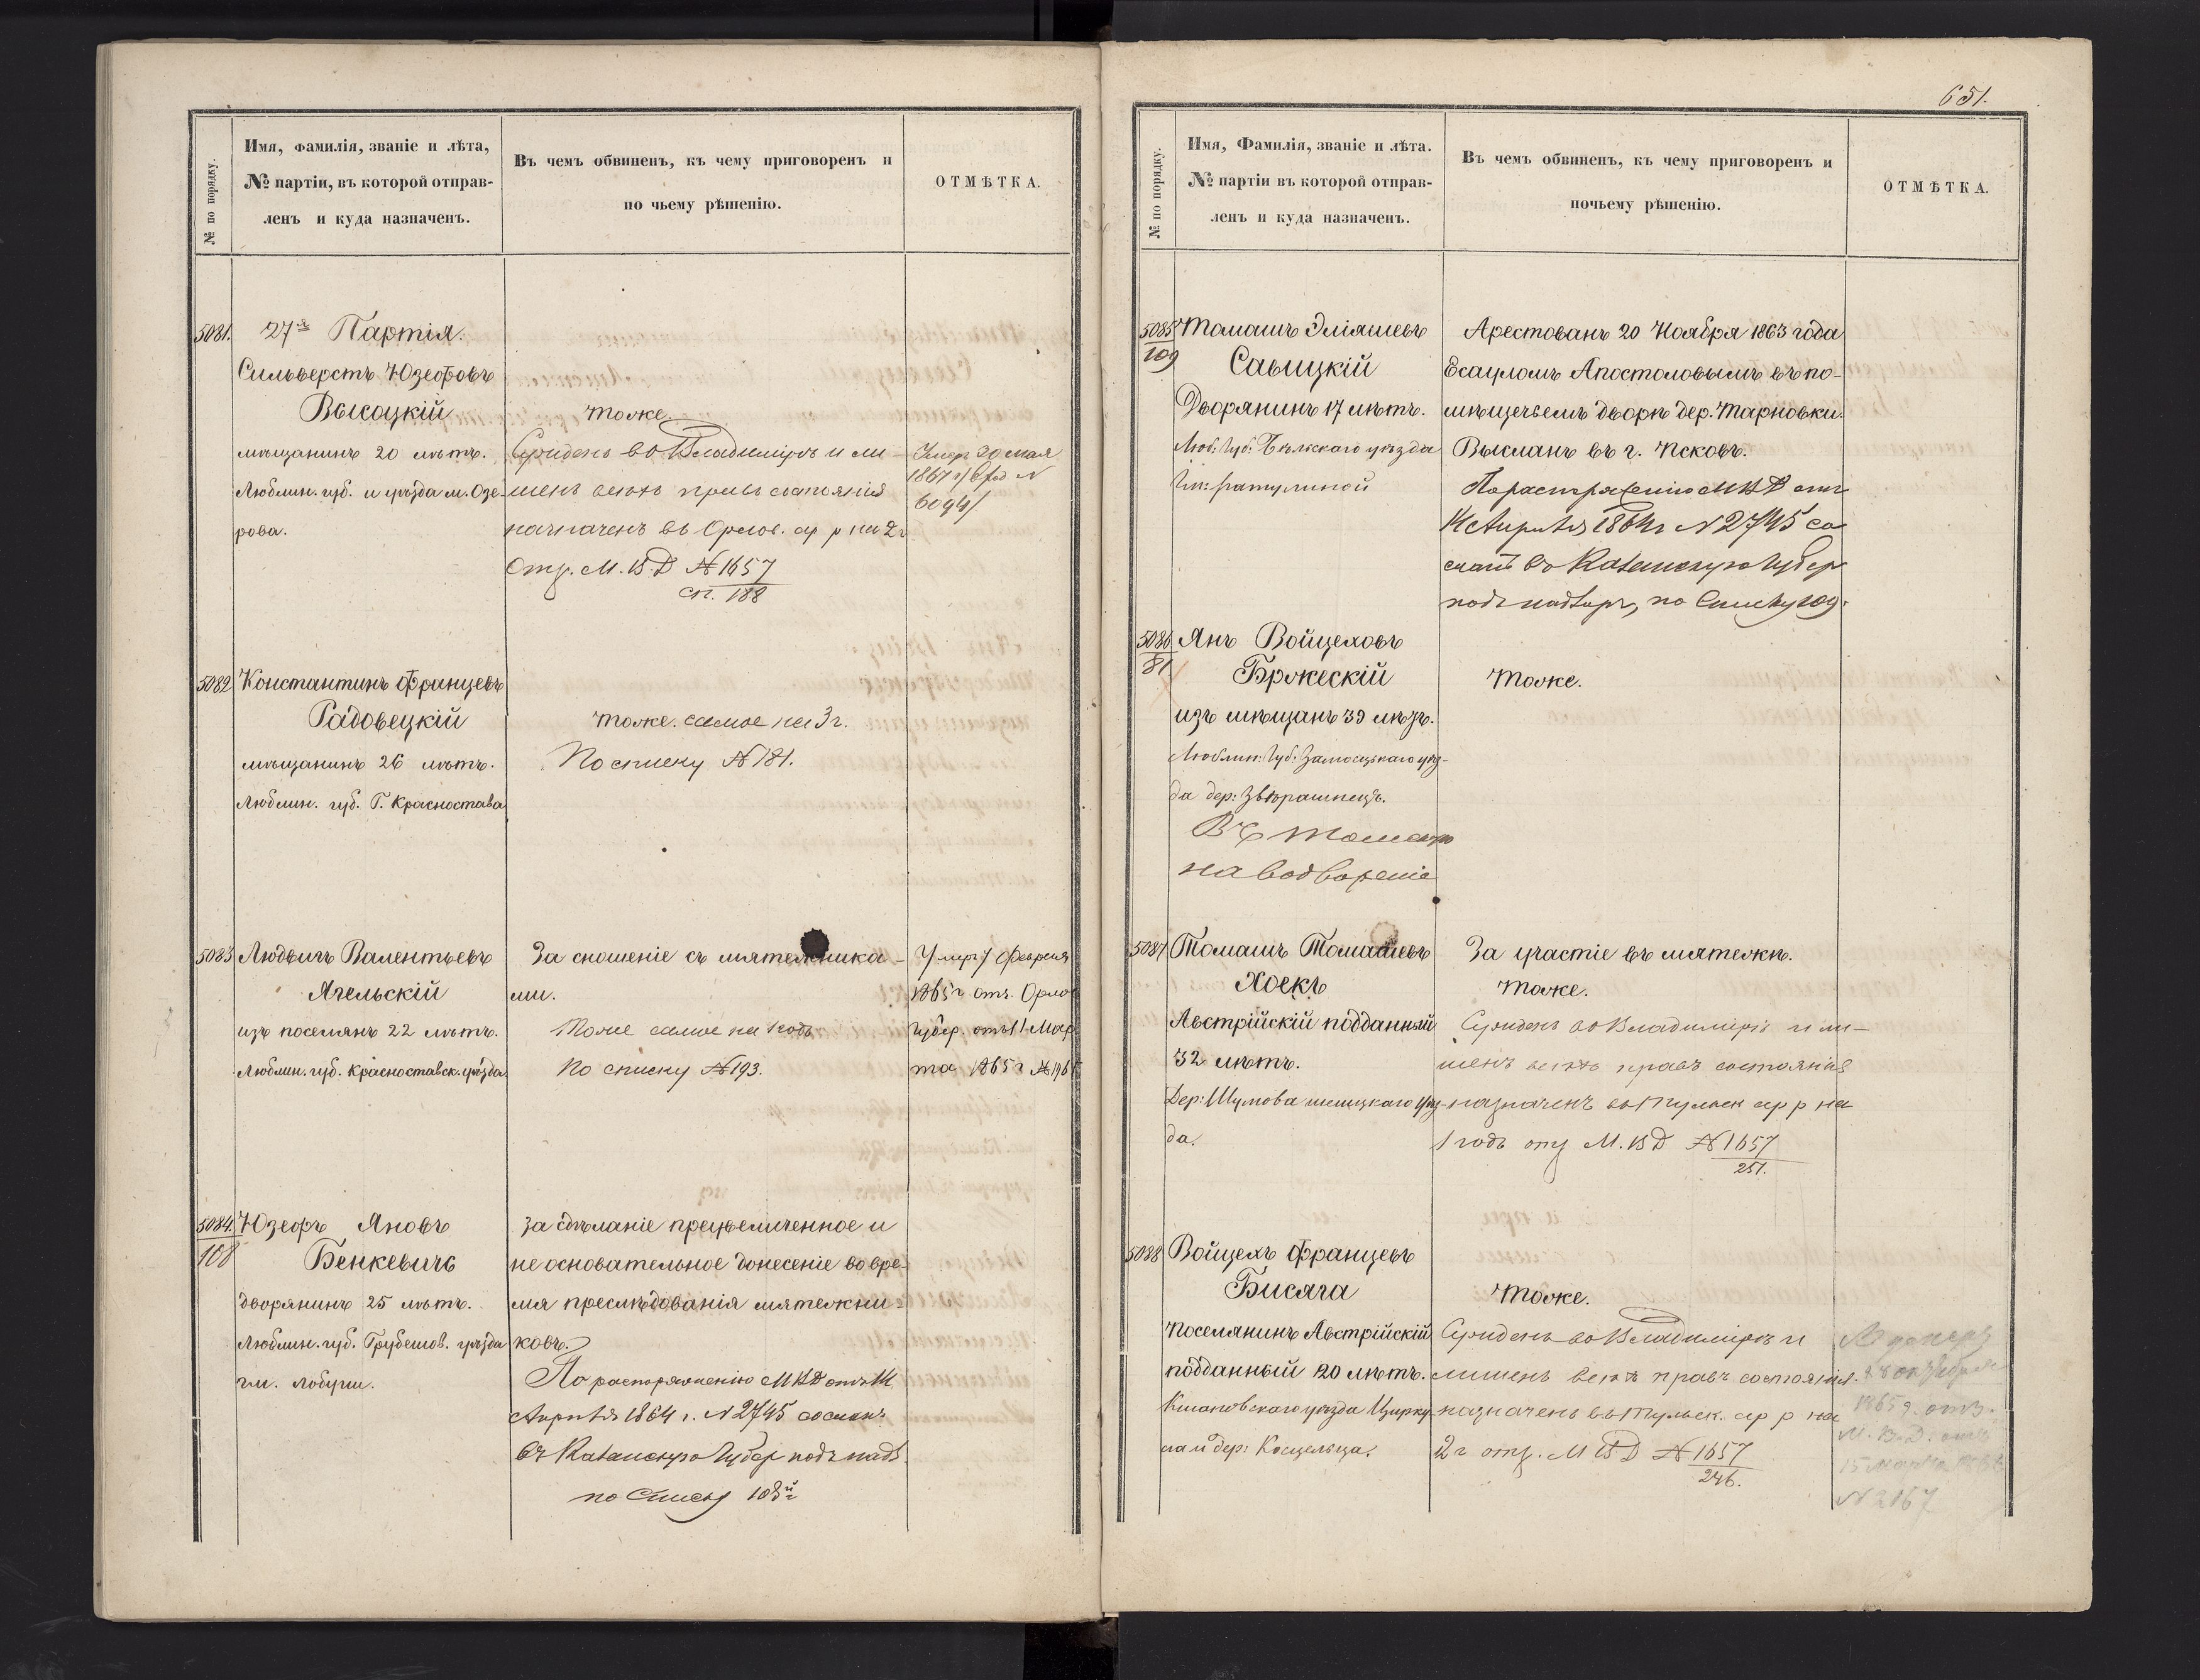 № по порядку.
Имя, фамилія, званіе и лѣта,
№ партіи, въ которой отправ-
ленъ и куда назначенъ.
Въ чемъ обвиненъ, къ чему приговоренъ и
по чьему рѣшенію.
ОТМѢТКА.
5081.
27я Партія.
Сильверстъ Юзефовъ
Высоцкій
мѣщанинъ 20 лѣтъ.
Люблин. губ. и уѣзда м. Озе-
рова.
тоже.
Сужденъ во Владимірѣ и ли
шенъ всѣхъ правъ состоянія
назначенъ въ Орлов. ар р на 2 г
Отз. М. В. Д № 1657
сп. 188
Умеръ 20 мая
6094/
5082
Константинъ Францевъ
Радовецкій
мѣщанинъ 26 лѣтъ.
Люблин. губ. Г. Красностава
тоже. самое на 3 г.
По списку № 181.
5083
Людвигъ Валентьевъ
Ягельскій
изъ поселянъ 22 лѣтъ.
Люблин. губ. Красноставск. уѣзда
За сношеніе съ мятежника-
ми.
Тоже самое на 1 годъ
По списку № 193.
Умеръ 7 Февраля
1865 г. отз. Орло
Губер. отъ 11 Мар
та 1865 г №
5084.
108
Юзефъ Яновъ
Бенкевичъ
дворянинъ 25 лѣтъ.
Люблин. губ. Грубешов. уѣзда
гм. Лобуни.
За сдѣланіе преувеличенное и
не основательное донесеніе во вре-
мя преслѣдованія мятежни-
ковъ.
По распоряженію МВД отъ 14
Апрѣля 1864 г. № 2745 сослан
въ Казанскую Губер подъ надз.
по списку 108й
651.
№ по порядку.
Имя, Фамилія, званіе и лѣта.
№ партіи въ которой отправ-
ленъ и куда назначенъ.
Въ чемъ обвиненъ, къ чему приговоренъ и
почьему рѣшенію.
ОТМѢТКА.
5085
109
Томашъ Эліяшевъ
Савицкій
Дворянинъ 17 лѣтъ.
Люб: Губ: Бѣльскаго уѣзда
Арестованъ 20 Ноября 1863 года
Есауломъ Апостоловымъ въ по-
мѣщичьемъ дворѣ дер. Тарновки.
Высланъ въ г. Псковъ.
По распоряженію МВД отъ
14 Апрѣля 1864 г № 2745 со
сланъ въ Казанскую Губер
подъ надзоръ, по Списку 109.
5086
81
Янъ Войцеховъ
Бржескій
изъ мѣщанъ 39 лѣтъ.
Люблин: Губ: Замосцскаго уѣз-
да дер: Звѣрашнецъ.
Въ Томскую
на водвореніе
Тоже.
5087
Томашъ Томашевъ
Хоекъ
Австрійскій подданный
32 лѣтъ.
Дер: Шумова уѣз-
да.
За участіе въ мятежѣ.
тоже.
Сужденъ во Владимірѣ и ли-
шенъ всѣхъ правъ состоянія
назначенъ въ Тульск ар р на
1 годъ отз М. В Д № 1657
251.
5088
Войцехъ Францевъ
Бисяга
Поселянинъ Австрійскій
подданный 20 лѣтъ.
уѣзда Цирку
ла й дер:
тоже.
Сужденъ во Владимірѣ и
лишенъ всѣхъ правъ состоянія.
назначенъ въ Тульск. ар р на
2 г отз. М В Д № 1657
246.
1865 г. отз.
М. В. Д. отъ
15 Марта
№ 2167